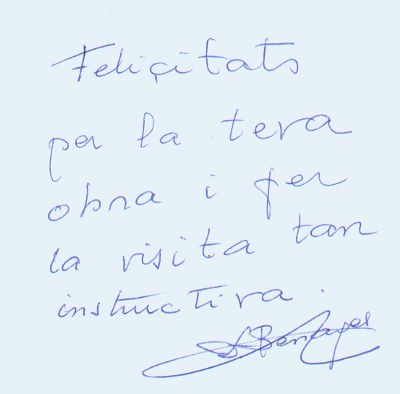 Feliçitats
per la teva
obra i per
la visita tan
instructiva.